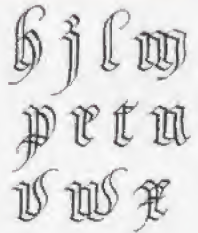 h j l m
p r t u
v w x